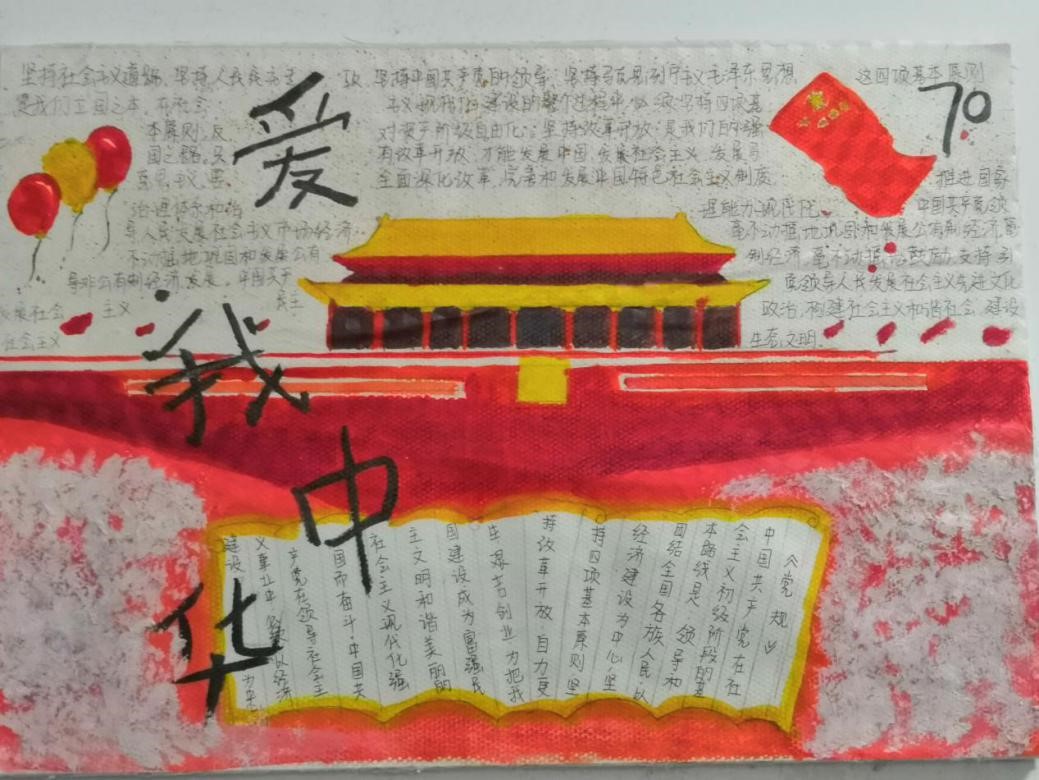 爱
我
中
华
70
坚持社会主义道路、坚持人民民主
政、坚持中国共产党的领导、坚持马克思列宁主义毛泽东思想
这四项基本原则
是我们立国之本。在社会
主义现代化建设的整个过程中,必须坚持四项基
本原则,反
对资产阶级自由化。坚持改革开放,是我们的强
国之路。只
有改革开放,才能发展中国、发展社会主义、发展马
克思主义。要
全面深化改革,完善和发展中国特色社会主义制度,
推进国家
治理体系和治
理能力现代化。
中国共产党领
导人民发展社会主义市场经济。
毫不动摇地巩固和发展公有制经济,毫
不动摇地巩固和发展公有
制经济,毫不动摇地鼓励、支持、引
导非公有制经济发展。中国共产
党领导人民发展社会主义先进文化
发展社会主义
民主
政治,构建社会主义和谐社会,建设
社会主义
生态文明。
《党规》
中国共产党在社
会主义初级阶段的基
本路线是:领导和
团结全国各族人民,以
经济建设为中心,坚
持四项基本原则,坚
持改革开放,自力更
生,艰苦创业,为把我
国建设成为富强民
主文明和谐美丽的
社会主义现代化强
国而奋斗。中国共
产党在领导社会主
义事业中,必须以经济
建设为中